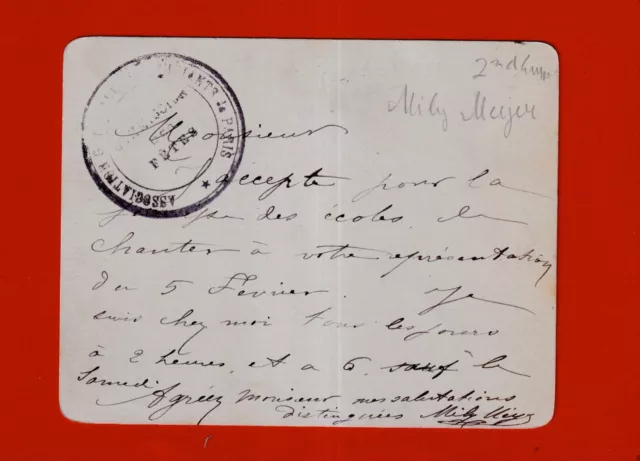 2nd
Mily Meyer
ASSOCIATION G
de PARIS
FETES
Monsieur
J'accepte pour la
des écoles, de
chanter à votre représentation
du 5 Février. Je
suis chez moi tous les jours
à 2 heures, et a 6. sauf le
Samedi Agréez monsieur mes salutations
distinguées Mily Meyer